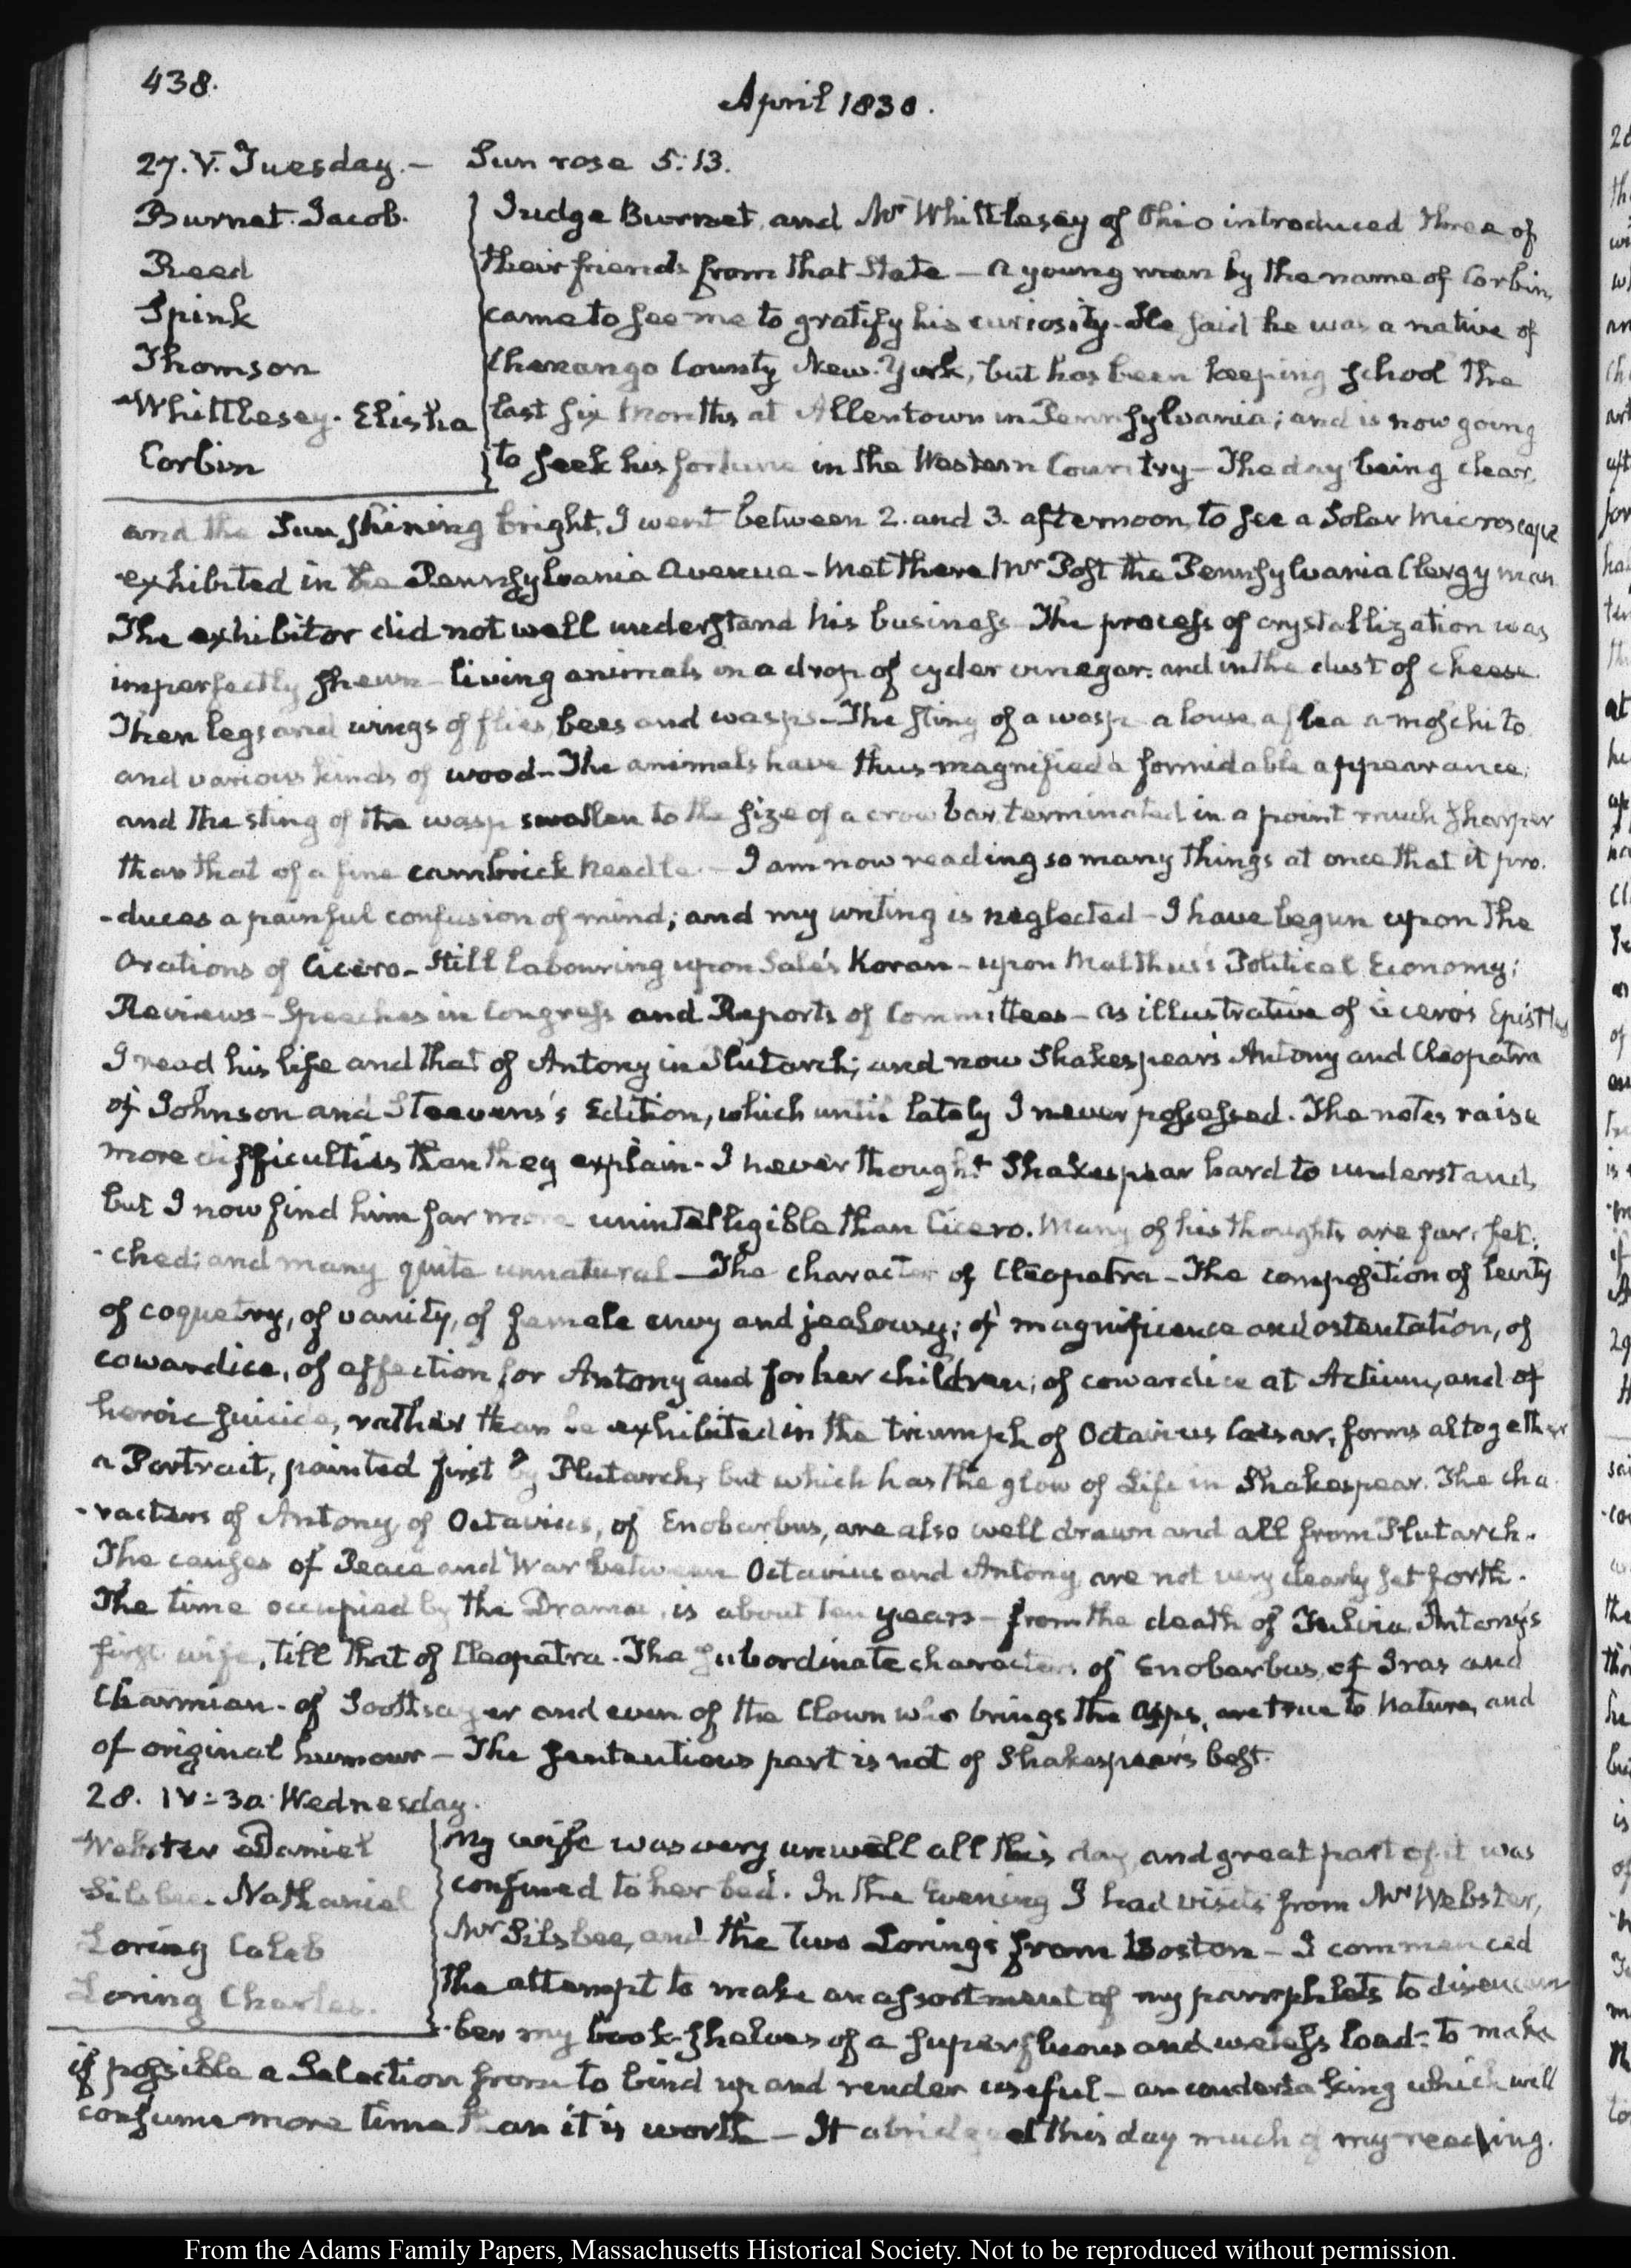 438.
April 1830.
27. V. Tuesday. — Sun rose 5:13.
Burnet. Jacob.
Reed
Spink
Thomson
Whittlesey. Elisha
Corbin
Judge Burnet, and Mr Whittlesey of Ohio introduced three of
their friends from that State — A young man by the name of Corbin,
came to see me to gratify his curiosity. He said he was a native of
Chenango County New-York, but has been keeping school the
last six months at Allentown in Pennsylvania; and is now going
to seek his fortune in the Western Country — The day being clear,
and the Sun shining bright, I went between 2. and 3. afternoon, to see a Solar Microscope
exhibited in the Pennsylvania Avenue — Met there Mr Post the Pennsylvania Clergyman
The exhibitor did not well understand his business The process of crystallization was
imperfectly shewn — living animals in a drop of cyder vinegar. and in the dust of cheese.
Then legs and wings of flies, bees and wasps — The sting of a wasp a louse, a flea a moschito
and various kinds of wood — The animals have thus magnified a formidable appearance;
and the sting of the wasp swollen to the size of a crow bar, terminated in a point much sharper
than that of a fine cambrick needle. — I am now reading so many things at once that it pro-
-duces a painful confusion of mind; and my writing is neglected — I have begun upon the
Orations of Cicero — Still labouring upon Sale's Koran — upon Malthus's Political Economy;
Reviews — Speeches in Congress and Reports of Committees — As illustrative of Cicero's Epistles
I read his life and that of Antony in Plutarch; and now Shakespear's Antony and Cleopatra
of Johnson and Steevens's Edition, which until lately I never possessed. The notes raise
more difficulties than they explain — I never thought Shakespear hard to understand,
but I now find him far more unintelligible than Cicero. Many of his thoughts are far-fet-
-ched; and many quite unnatural — The character of Cleopatra — The composition of levity
of coquetry, of vanity, of female envy and jealousy; of magnificence and ostentation, of
cowardice, of affection for Antony and for her children; of cowardice at Actium, and of
heroic suicide, rather than be exhibited in the triumph of Octavius Caesar, forms altogether
a Portrait, painted first by Plutarch, but which has the glow of Life in Shakespear. The cha-
-racters of Antony, of Octavius, of Enobarbus, are also well drawn and all from Plutarch.
The causes of Peace and War between Octavius and Antony, are not very clearly set forth.
The time occupied by the Drama, is about ten years — from the death of Fulvia, Antony's
first wife, till that of Cleopatra. The subordinate characters of Enobarbus, of Iras and
Charmian — of Soothsayer and even of the Clown who brings the Asps, are true to Nature, and
of original humour — The sententious part is not of Shakespear's best.
28. IV:30. Wednesday.
Webster Daniel
Silsbee. Nathaniel
Loring Caleb
Loring Charles.
My wife was very unwell all this day, and great part of it was
confined to her bed. In the Evening I had visits from Mr Webster,
Mr Silsbee, and the two Lorings from Boston — I commenced
the attempt to make an assortment of my pamphlets to disencum-
-ber my book-shelves of a superfluous and useless load — to make
if possible a Selection from to bind up and render useful — an undertaking which will
consume more time than it is worth — It abridged this day much of my reading.
From the Adams Family Papers, Massachusetts Historical Society. Not to be reproduced without permission.